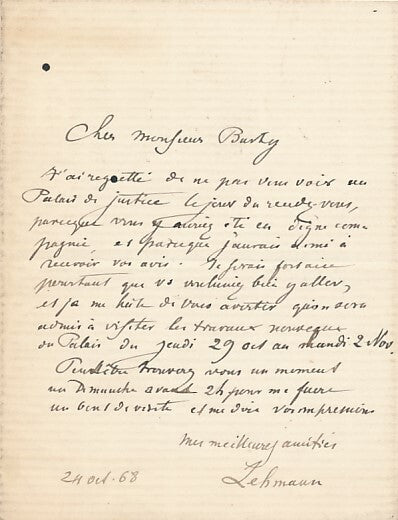 Cher monsieur Burty
J'ai regretté de ne pas vous voir au
Palais de justice le jour du rendez-vous,
parceque vous y auriez été en digne com
pagnie, et parceque j'aurais aimé à
recevoir vos avis. Je serais fort aise
pourtant que vs vouluniez bien y aller,
et je me hâte de vous avertir qu'on sera
admis à visiter les travaux nouveaux
du Palais du jeudi 29 oct au mardi 2 Nov.
Peut être trouverez vous un moment
un Dimanche avant 2h pour me faire
un bout de visite et me dire vos impressions
mes meilleures amitiés
24 oct. 68 Lehmann